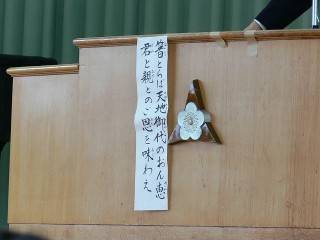 箸とらば天地御代のおん恵
君と親とのご恩を味わえ